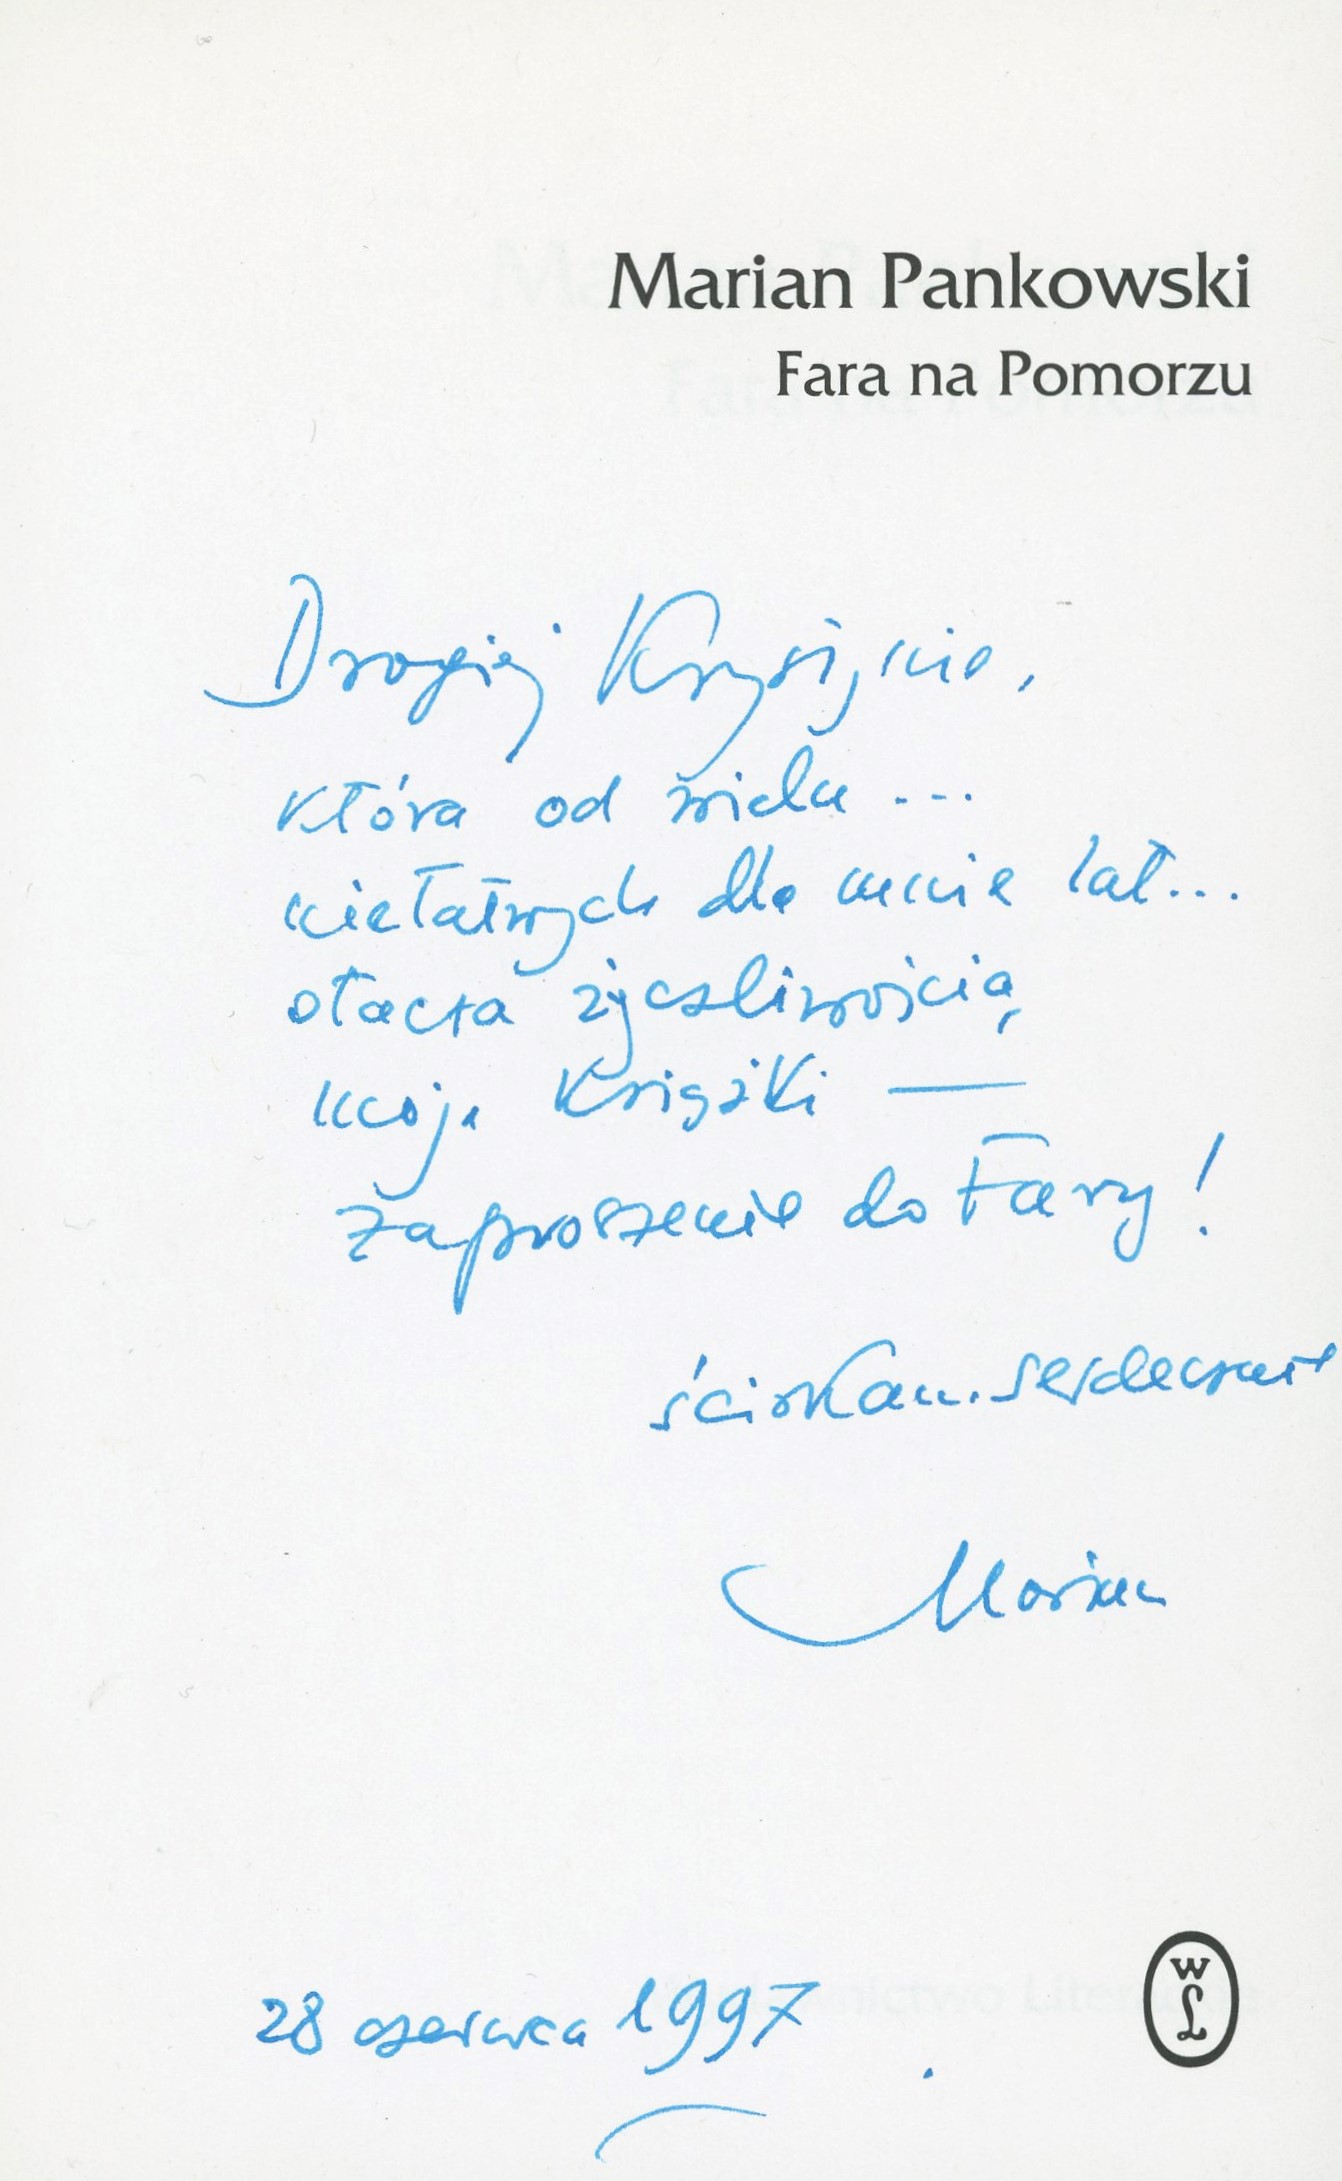 Marian Pankowski
Fara na Pomorzu
Drogiej Krysi,
która od wielu ...
niełatwych dla mnie lat...
otacza życzliwością
moje książki —
zaproszenie do Fary!
ściskam serdecznie
Marian
28 czerwca 1997
W
L